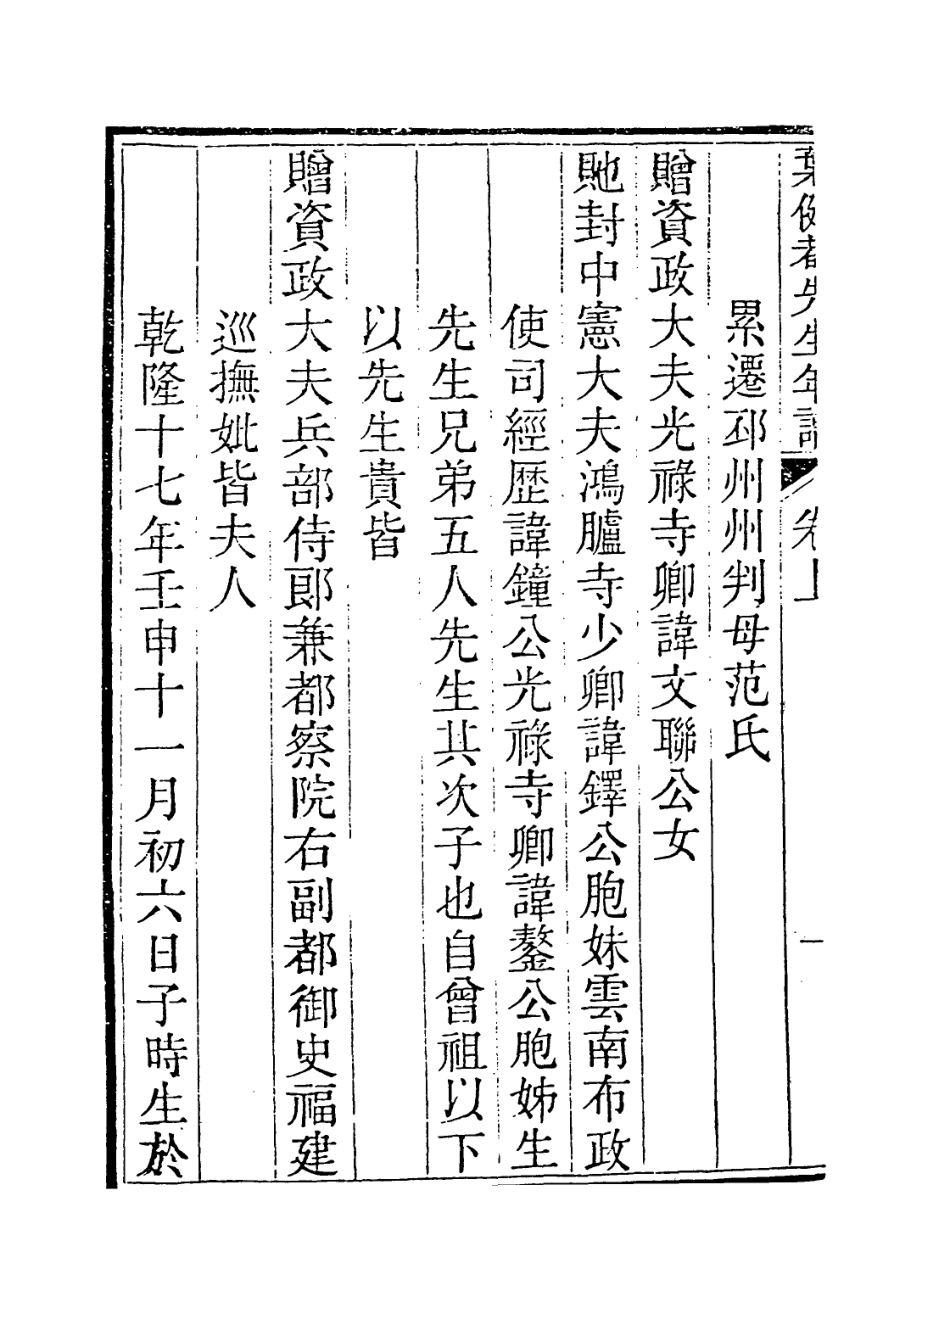 葉健菴先生年譜 卷上 一
累遷邳州州判母范氏
贈資政大夫光祿寺卿諱文聯公女
貤封中憲大夫鴻臚寺少卿諱鐸公胞妹雲南布政
使司經歷諱鐘公光祿寺卿諱鏊公胞姊生
先生兄弟五人先生其次子也自曾祖以下
以先生貴皆
贈資政大夫兵部侍郎兼都察院右副都御史福建
巡撫妣皆夫人
乾隆十七年壬申十一月初六日子時生於